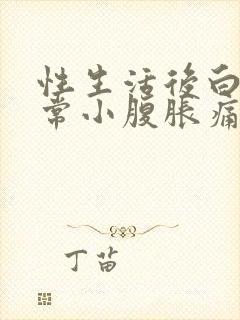 性生活後白
常小腹脹痛
丁苗